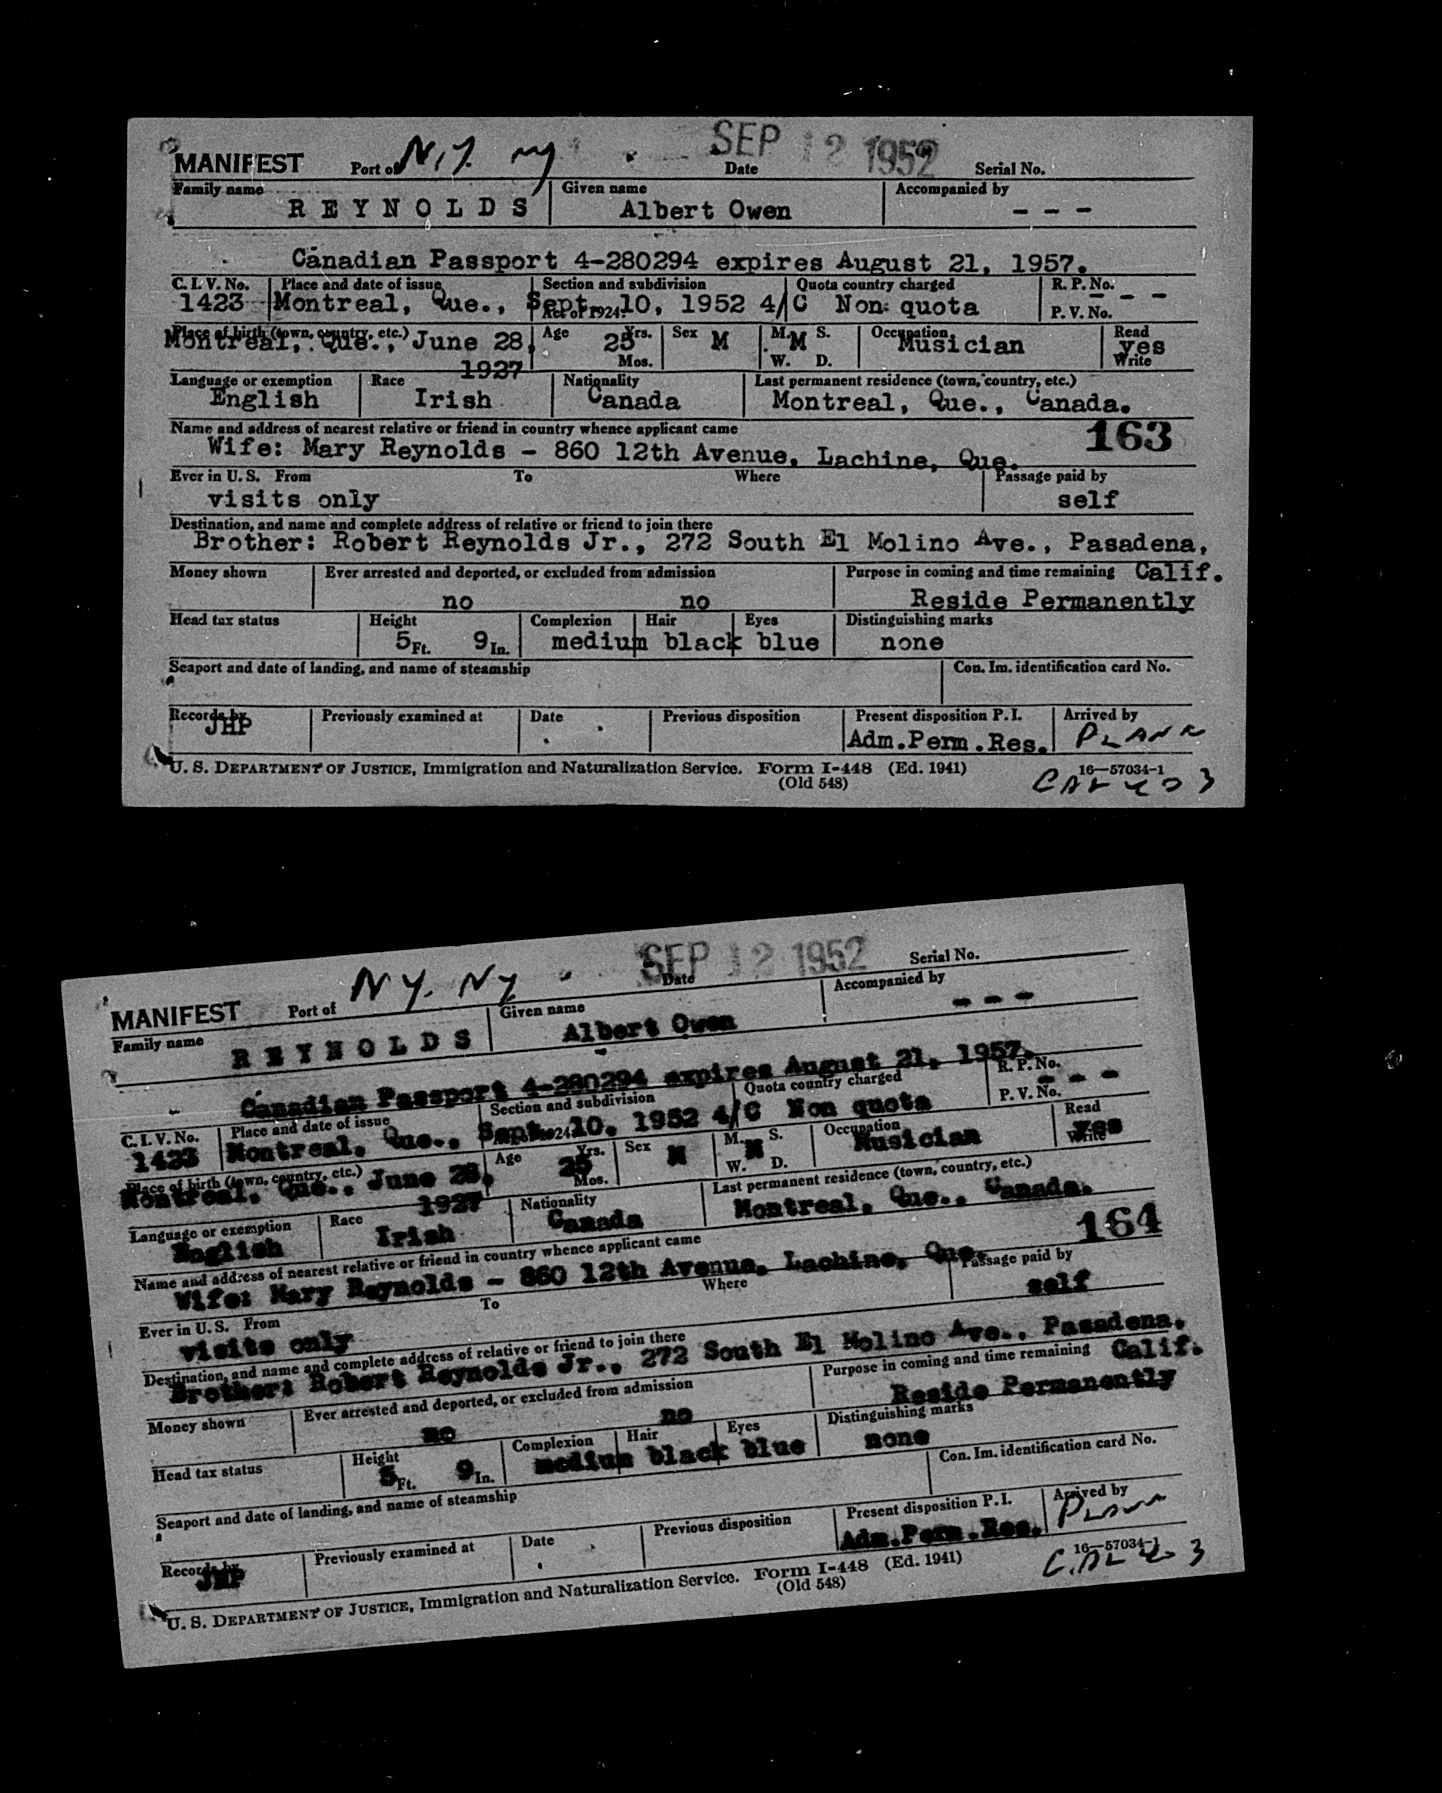 MANIFEST Port of N.Y. NY SEP 12 1952 Date Serial No.
Family name Given name Accompanied by
REYNOLDS Albert Owen - - -
Canadian Passport 4-280294 expires August 21, 1957.
C. I. V. No. Place and date of issue Section and subdivision Quota country charged R. P. No.
1423 Montreal, Que., Sept. 10, 1952 4/C Non quota - - -
Act of 1924 P. V. No.
Place of birth (town, country, etc.) Age Yrs. Sex M. S. Occupation Read
Montreal, Que., June 28, 25 M M Musician yes
1927 Mos. W. D. Write
Language or exemption Race Nationality Last permanent residence (town, country, etc.)
English Irish Canada Montreal, Que., Canada.
Name and address of nearest relative or friend in country whence applicant came 163
Wife: Mary Reynolds - 860 12th Avenue, Lachine, Que.
Ever in U. S. From To Where Passage paid by
visits only self
Destination, and name and complete address of relative or friend to join there
Brother: Robert Reynolds Jr., 272 South El Molino Ave., Pasadena,
Money shown Ever arrested and deported, or excluded from admission Purpose in coming and time remaining Calif.
no no Reside Permanently
Head tax status Height Complexion Hair Eyes Distinguishing marks
5 Ft. 9 In. medium black blue none
Seaport and date of landing, and name of steamship Con. Im. identification card No.
Records by Previously examined at Date Previous disposition Present disposition P. I. Arrived by
JHP Adm.Perm.Res. PLANE
U. S. DEPARTMENT OF JUSTICE, Immigration and Naturalization Service. Form I-448 (Ed. 1941) 16—57034-1
(Old 548)
MANIFEST Port of NY. NY SEP 12 1952 Date Serial No.
Family name Given name Accompanied by
REYNOLDS Albert Owen - - -
Canadian Passport 4-280294 expires August 21, 1957.
C. I. V. No. Place and date of issue Section and subdivision Quota country charged R. P. No.
1423 Montreal, Que., Sept. 10, 1952 4/C Non quota - - -
P. V. No.
Place of birth (town, country, etc.) Age Yrs. Sex M. S. Occupation Read
Montreal, Que., June 28, 25 M M Musician yes
1927 Mos. W. D. Write
Language or exemption Race Nationality Last permanent residence (town, country, etc.)
English Irish Canada Montreal, Que., Canada.
Name and address of nearest relative or friend in country whence applicant came 164
Wife: Mary Reynolds - 860 12th Avenue, Lachine, Que.
Ever in U. S. From To Where Passage paid by
visits only self
Destination, and name and complete address of relative or friend to join there
Brother: Robert Reynolds Jr., 272 South El Molino Ave., Pasadena,
Money shown Ever arrested and deported, or excluded from admission Purpose in coming and time remaining Calif.
no no Reside Permanently
Head tax status Height Complexion Hair Eyes Distinguishing marks
5 Ft. 9 In. medium black blue none
Seaport and date of landing, and name of steamship Con. Im. identification card No.
Records by Previously examined at Date Previous disposition Present disposition P. I. Arrived by
JHP Adm.Perm.Res.
U. S. DEPARTMENT OF JUSTICE, Immigration and Naturalization Service. Form I-448 (Ed. 1941) 16—57034-1
(Old 548)